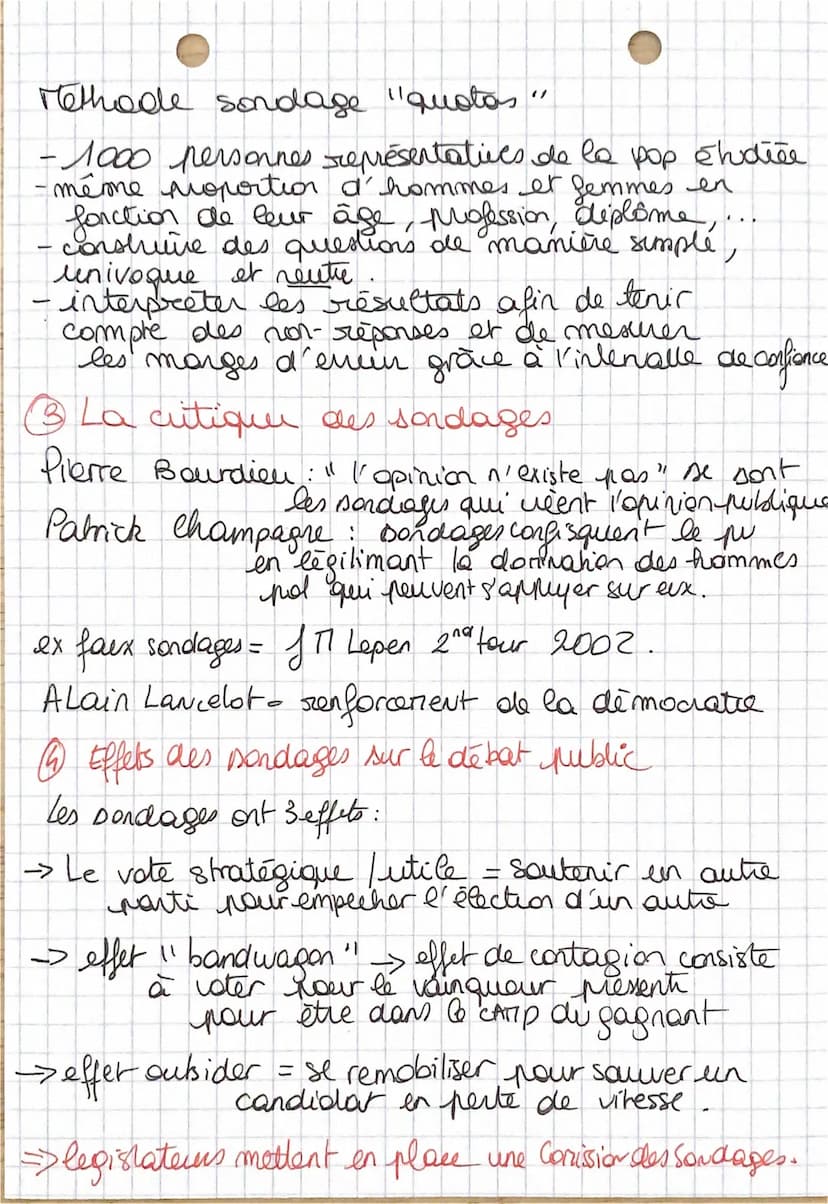 Méthode sondage "quotas"
- 1000 personnes représentatives de la pop étudiée
- même proportion d'hommes et femmes en
fonction de leur âge, profession, diplôme, ...
- construire des questions de manière simple,
univoque et neutre.
- interpréter les résultats afin de tenir
compte des non-réponses et de mesurer
les marges d'erreur grâce à l'intervalle de confiance
③ La critique des sondages
Pierre Bourdieu : "l'opinion n'existe pas" se sont
les sondages qui créent l'opinion publique
Patrick Champagne : sondages confisquent le pv
en légitimant la domination des hommes
pol qui peuvent s'appuyer sur eux.
ex faux sondages = JM Lepen 2nd tour 2002.
Alain Lancelot = renforcement de la démocratie
④ Effets des sondages sur le débat public
Les sondages ont 3 effets :
→ Le vote stratégique / utile = soutenir un autre
parti pour empecher l'élection d'un autre
→ effet "bandwagon" → effet de contagion consiste
à voter pour le vainqueur présenti
pour être dans le camp du gagnant
→ effet outsider = se remobiliser pour sauver un
candidat en perte de vitesse.
⇒ legislateurs mettent en place une Comission des Sondages.